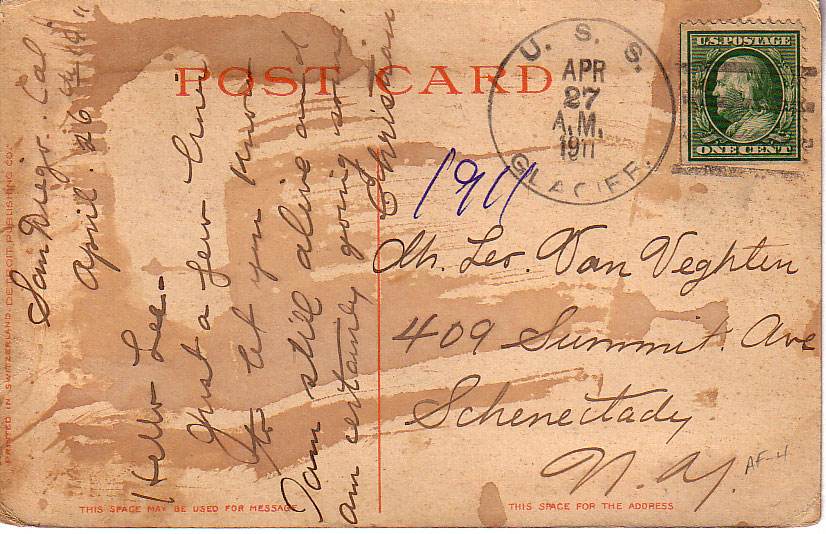 POST CARD
U. S. S.
APR
27
A.M.
1911
GLACIER.
U.S. POSTAGE
ONE CENT
1911
San Diego. Cal
April. 26th 1911
Hello Leo-
Just a few lines
to let you know
I am still alive and
am certainly going some.
Christian
Mr. Leo. Van Veghten
409 Summit. Ave
Schenectady
N.Y.
AF-4
THIS SPACE MAY BE USED FOR MESSAGE
THIS SPACE FOR THE ADDRESS
PRINTED IN SWITZERLAND. DETROIT PUBLISHING CO.